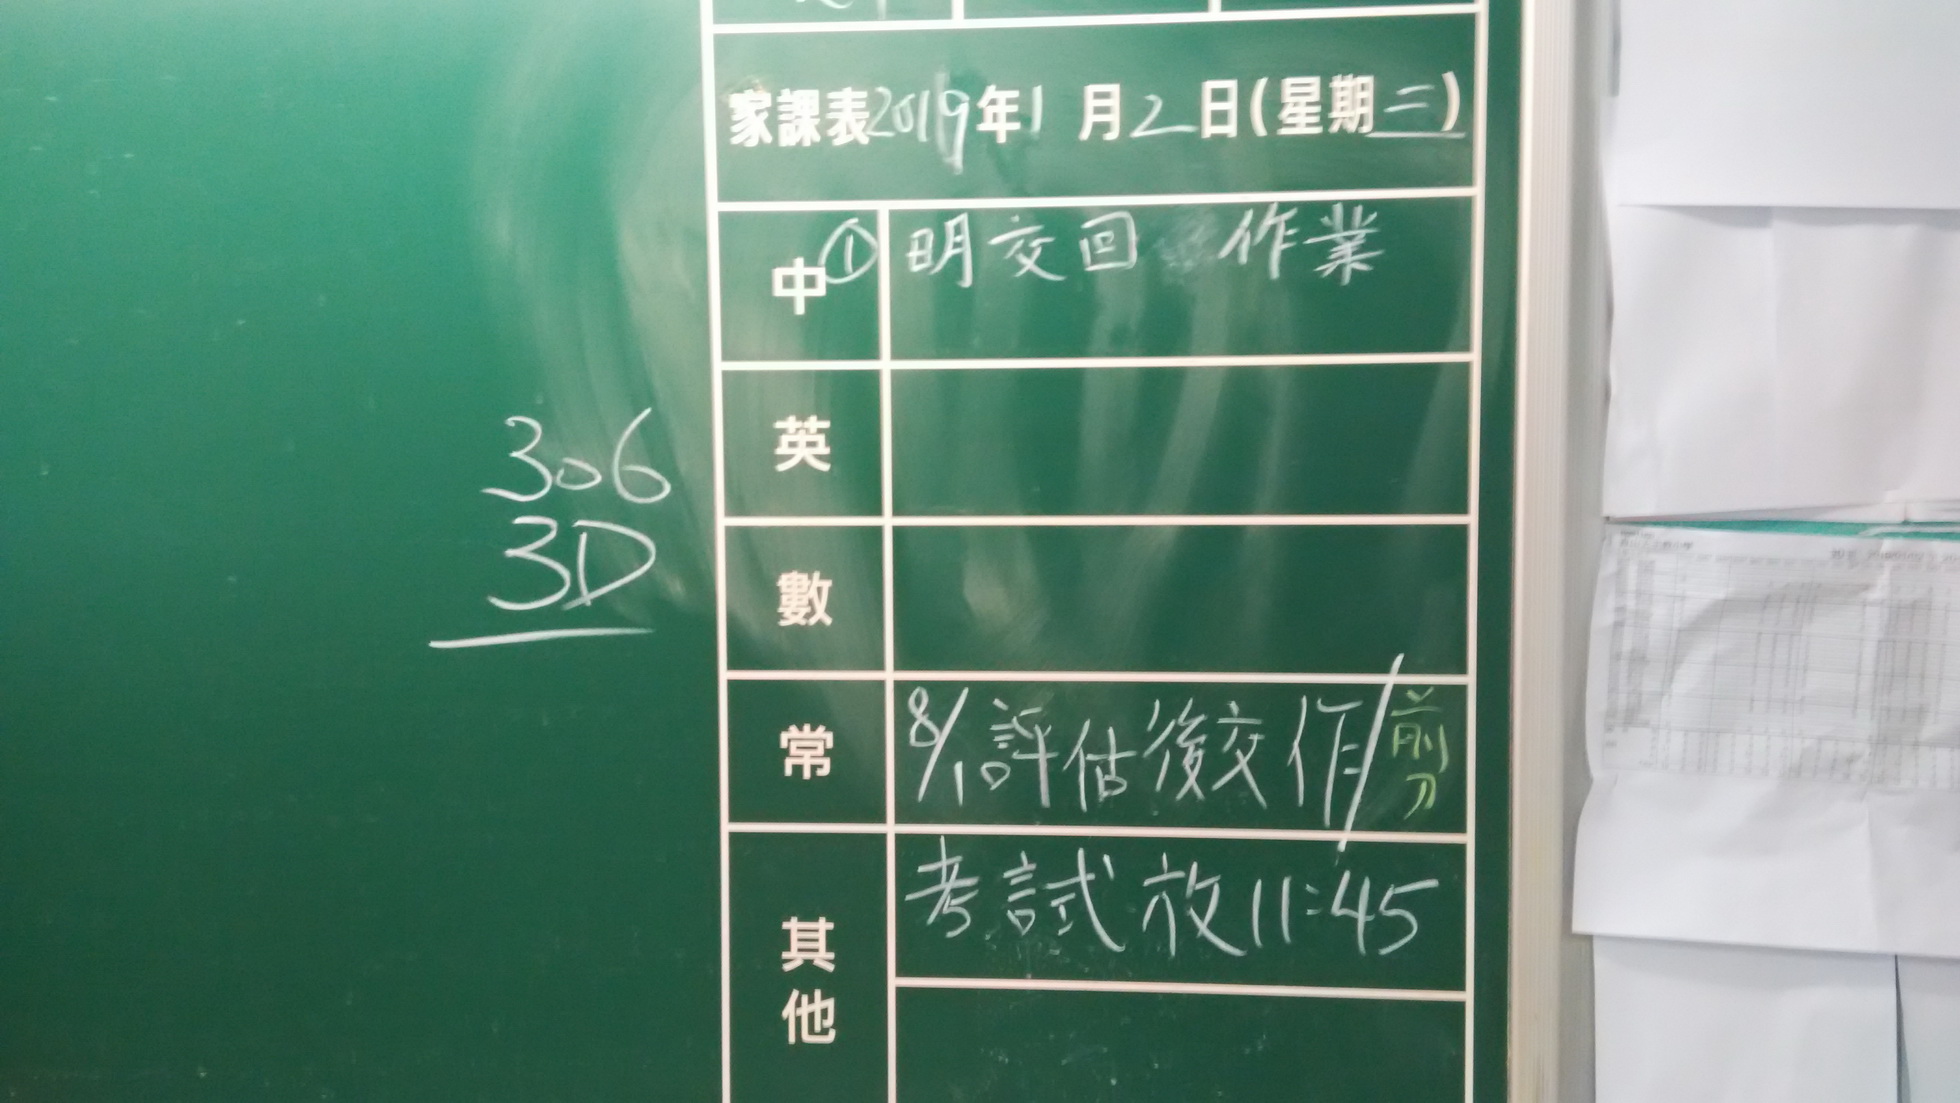 家課表2019年1月2日(星期三)
中① 明交回 作業
英
數
常 8/1評估後交作/剪
其他 考試放11:45
306
3D